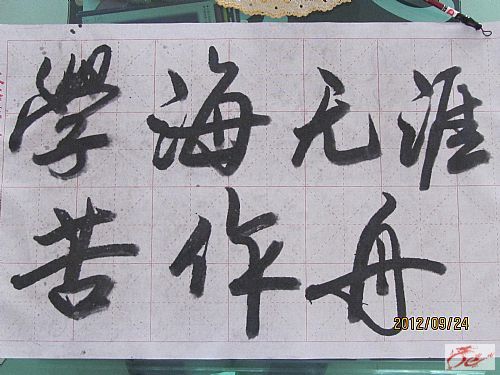 學海无涯
苦作舟
2012/09/24